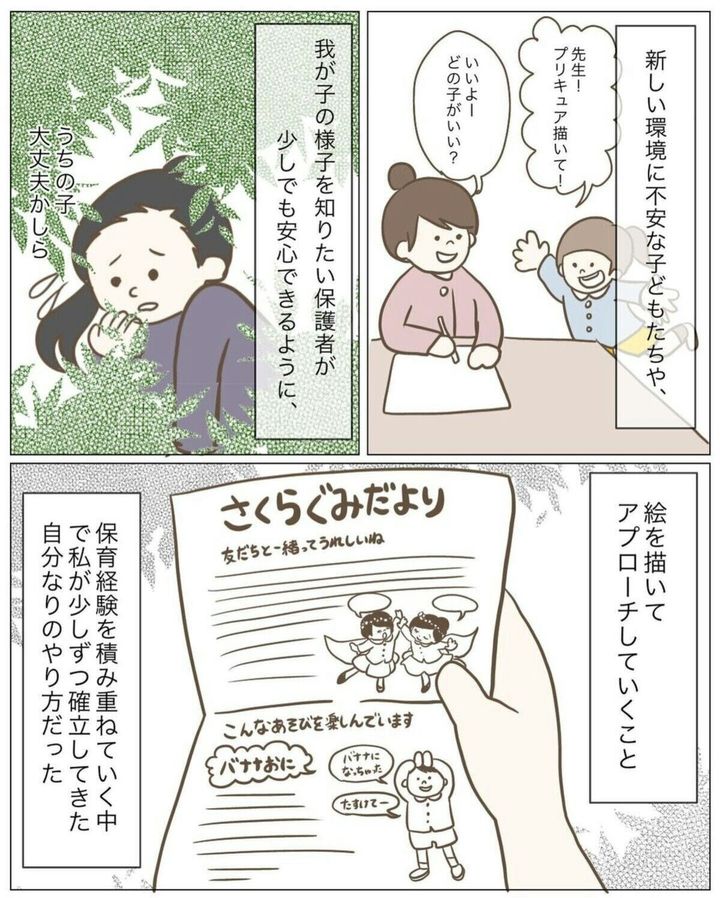 新しい環境に不安な子どもたちや、
先生！
プリキュア描いて！
いいよー
どの子がいい？
我が子の様子を知りたい保護者が
少しでも安心できるように、
うちの子
大丈夫かしら
絵を描いて
アプローチしていくこと
さくらぐみだより
友だちと一緒ってうれしいね
こんなあそびを楽しんでいます
バナナおに
バナナに
なっちゃった
たすけてー
保育経験を積み重ねていく中
で私が少しずつ確立してきた
自分なりのやり方だった